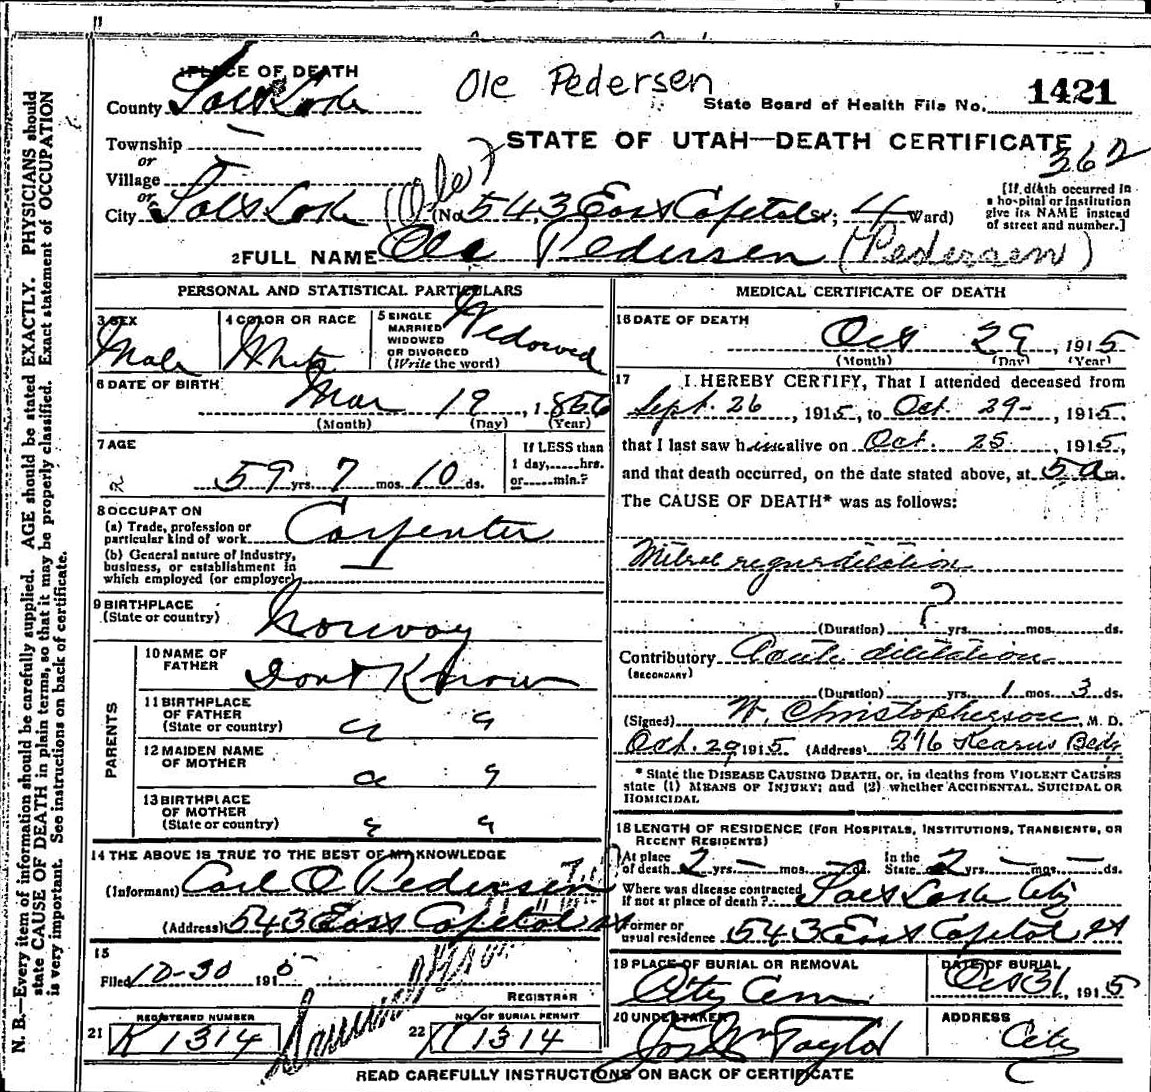 Ole Pedersen
1 PLACE OF DEATH
County Salt Lake
State Board of Health File No. 1421
Township —
STATE OF UTAH—DEATH CERTIFICATE
362
or
Village —
or
City Salt Lake (Ole) (No. 543 East Capitol St; 4 Ward)
[If death occurred in a hospital or institution give its NAME instead of street and number.]
2 FULL NAME Ole Pedersen (Pedersen)
PERSONAL AND STATISTICAL PARTICULARS
3 SEX
Male
4 COLOR OR RACE
White
5 SINGLE MARRIED WIDOWED OR DIVORCED (Write the word)
Widowed
6 DATE OF BIRTH
Mar 19, 1856
(Month) (Day) (Year)
7 AGE
59 yrs. 7 mos. 10 ds.
If LESS than 1 day,......hrs. or......min.?
8 OCCUPATION
(a) Trade, profession or particular kind of work Carpenter
(b) General nature of Industry, business, or establishment in which employed (or employer) —
9 BIRTHPLACE
(State or country) Norway
PARENTS
10 NAME OF FATHER Dont Know
11 BIRTHPLACE OF FATHER (State or country)
12 MAIDEN NAME OF MOTHER
13 BIRTHPLACE OF MOTHER (State or country)
14 THE ABOVE IS TRUE TO THE BEST OF MY KNOWLEDGE
(Informant) Carl O Pedersen
(Address) 543 East Capitol St
15
Filed 10-30 1915
REGISTRAR
21 REGISTERED NUMBER K 1314
22 NO. OF BURIAL PERMIT K 1314
MEDICAL CERTIFICATE OF DEATH
16 DATE OF DEATH
Oct 29, 1915
(Month) (Day) (Year)
17 I HEREBY CERTIFY, That I attended deceased from
Sept. 26, 1915, to Oct. 29-, 1915.
that I last saw him alive on Oct. 25, 1915,
and that death occurred, on the date stated above, at 5 a m.
The CAUSE OF DEATH* was as follows:
Mitral regurditation
(Duration) ? yrs. mos. ds.
Contributory Acute dilitation
(SECONDARY)
(Duration) yrs. 1 mos. 3 ds.
(Signed) W. Christopherson, M. D.
Oct. 29 1915. (Address) 276 Kearns Bldg
* State the DISEASE CAUSING DEATH, or, in deaths from VIOLENT CAUSES
state (1) MEANS OF INJURY; and (2) whether ACCIDENTAL, SUICIDAL OR
HOMICIDAL
18 LENGTH OF RESIDENCE (FOR HOSPITALS, INSTITUTIONS, TRANSIENTS, OR
RECENT RESIDENTS)
At place of death 2 yrs. — mos. — ds. In the State 2 yrs. — mos. — ds.
Where was disease contracted if not at place of death? Salt Lake City
Former or usual residence 543 East Capitol St
19 PLACE OF BURIAL OR REMOVAL
City Cem
DATE OF BURIAL
Oct 31, 1915
20 UNDERTAKER
Jos Wm Taylor
ADDRESS
City
READ CAREFULLY INSTRUCTIONS ON BACK OF CERTIFICATE
N. B.—Every item of information should be carefully supplied. AGE should be stated EXACTLY. PHYSICIANS should
state CAUSE OF DEATH in plain terms, so that it may be properly classified. Exact statement of OCCUPATION
is very important. See instructions on back of certificate.